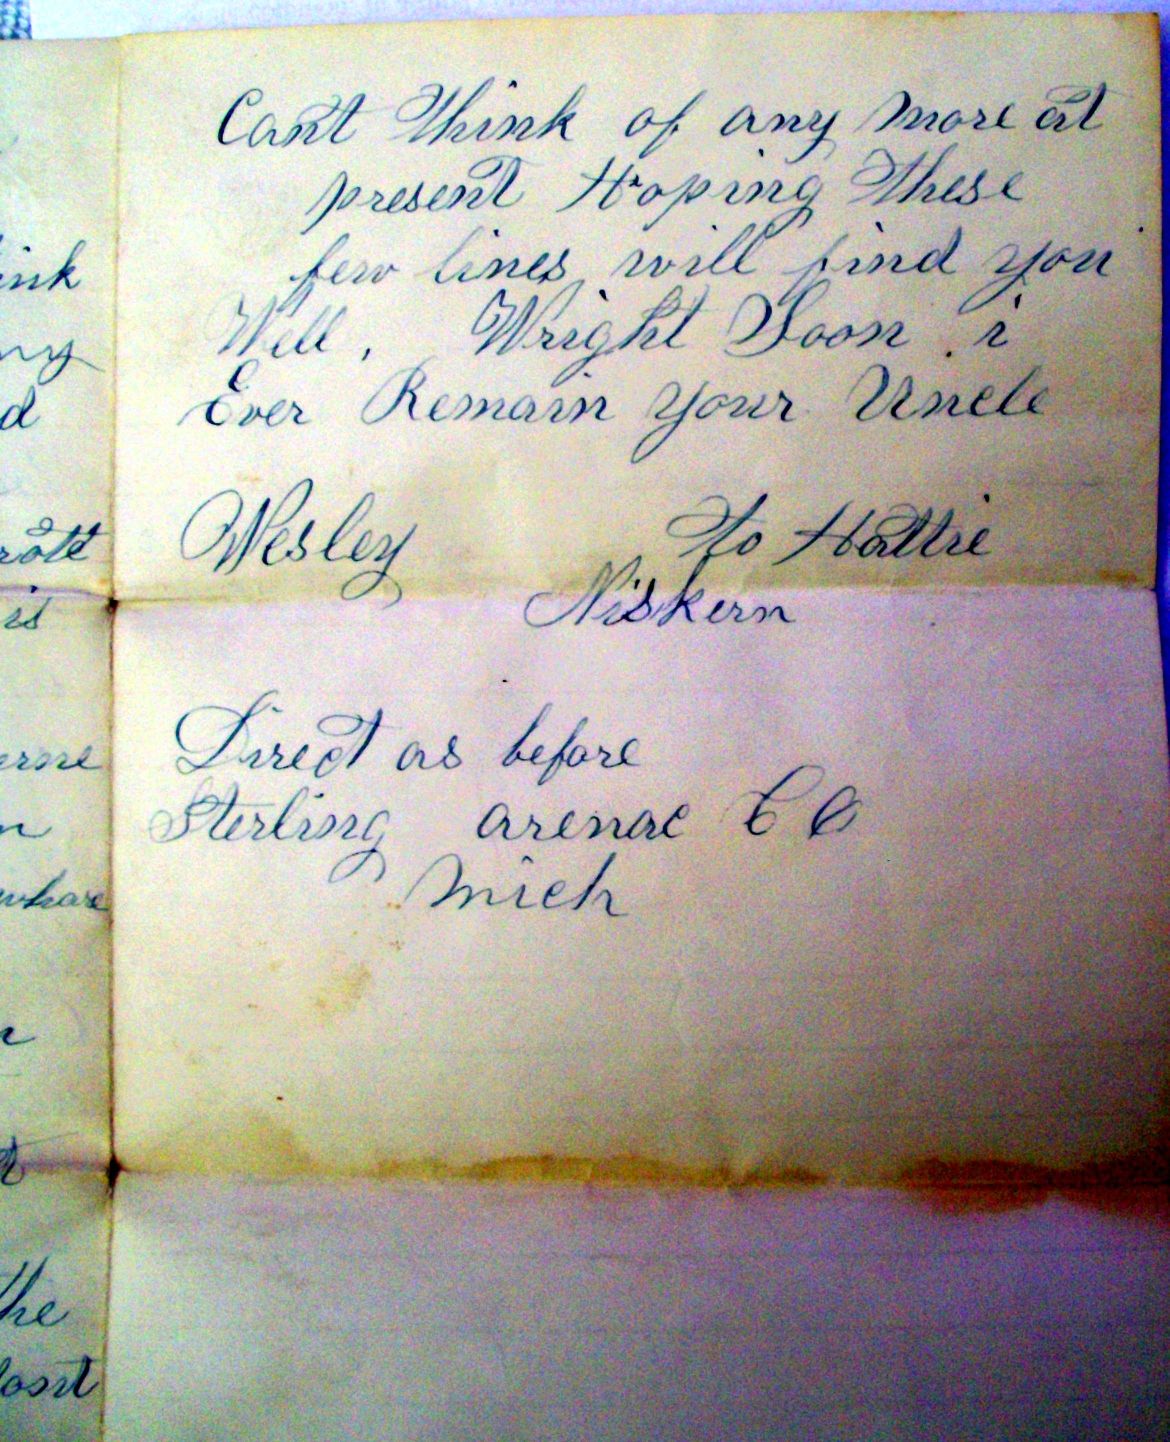 Cant Think of any more at
present Hoping These
few lines will find you
Well, Wright Soon i
Ever Remain your Uncle
Wesley To Hattie
Niskern
Direct as before
Sterling arenac CO
Mich
ink
ny
d
rote
is
erne
n
whare
the
dont